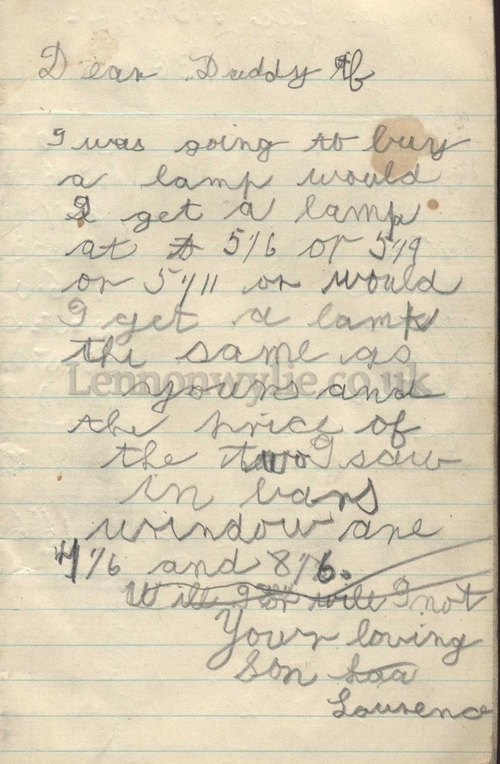 Dear Daddy If
I was going to buy
a lamp would
I get a lamp
at 5/6 or 5/9
or 5/11 or would
I get a lamp
the same as
Lennonwylie.co.uk
yours and
the price of
the two I saw
in
window are
4/6 and 8/6.
Will I or will I not
Your loving
Son
Laurence